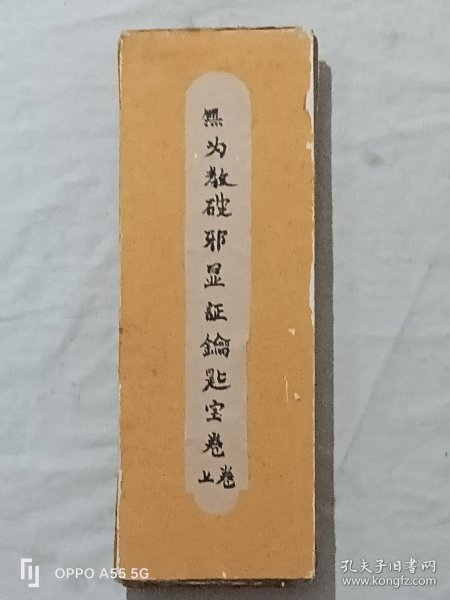 無为教破邪显証鑰匙宝卷
上卷
OPPO A55 5G
孔夫子旧书网
www.kongfz.com